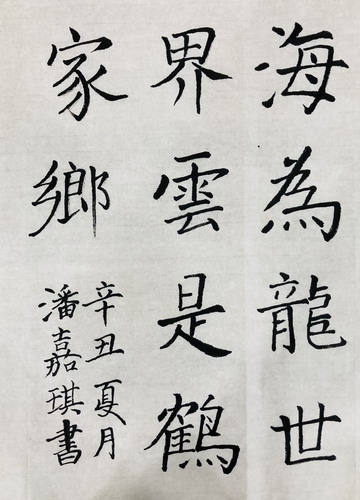 海為龍世
界雲是鶴
家鄉
辛丑夏月
潘嘉琪書